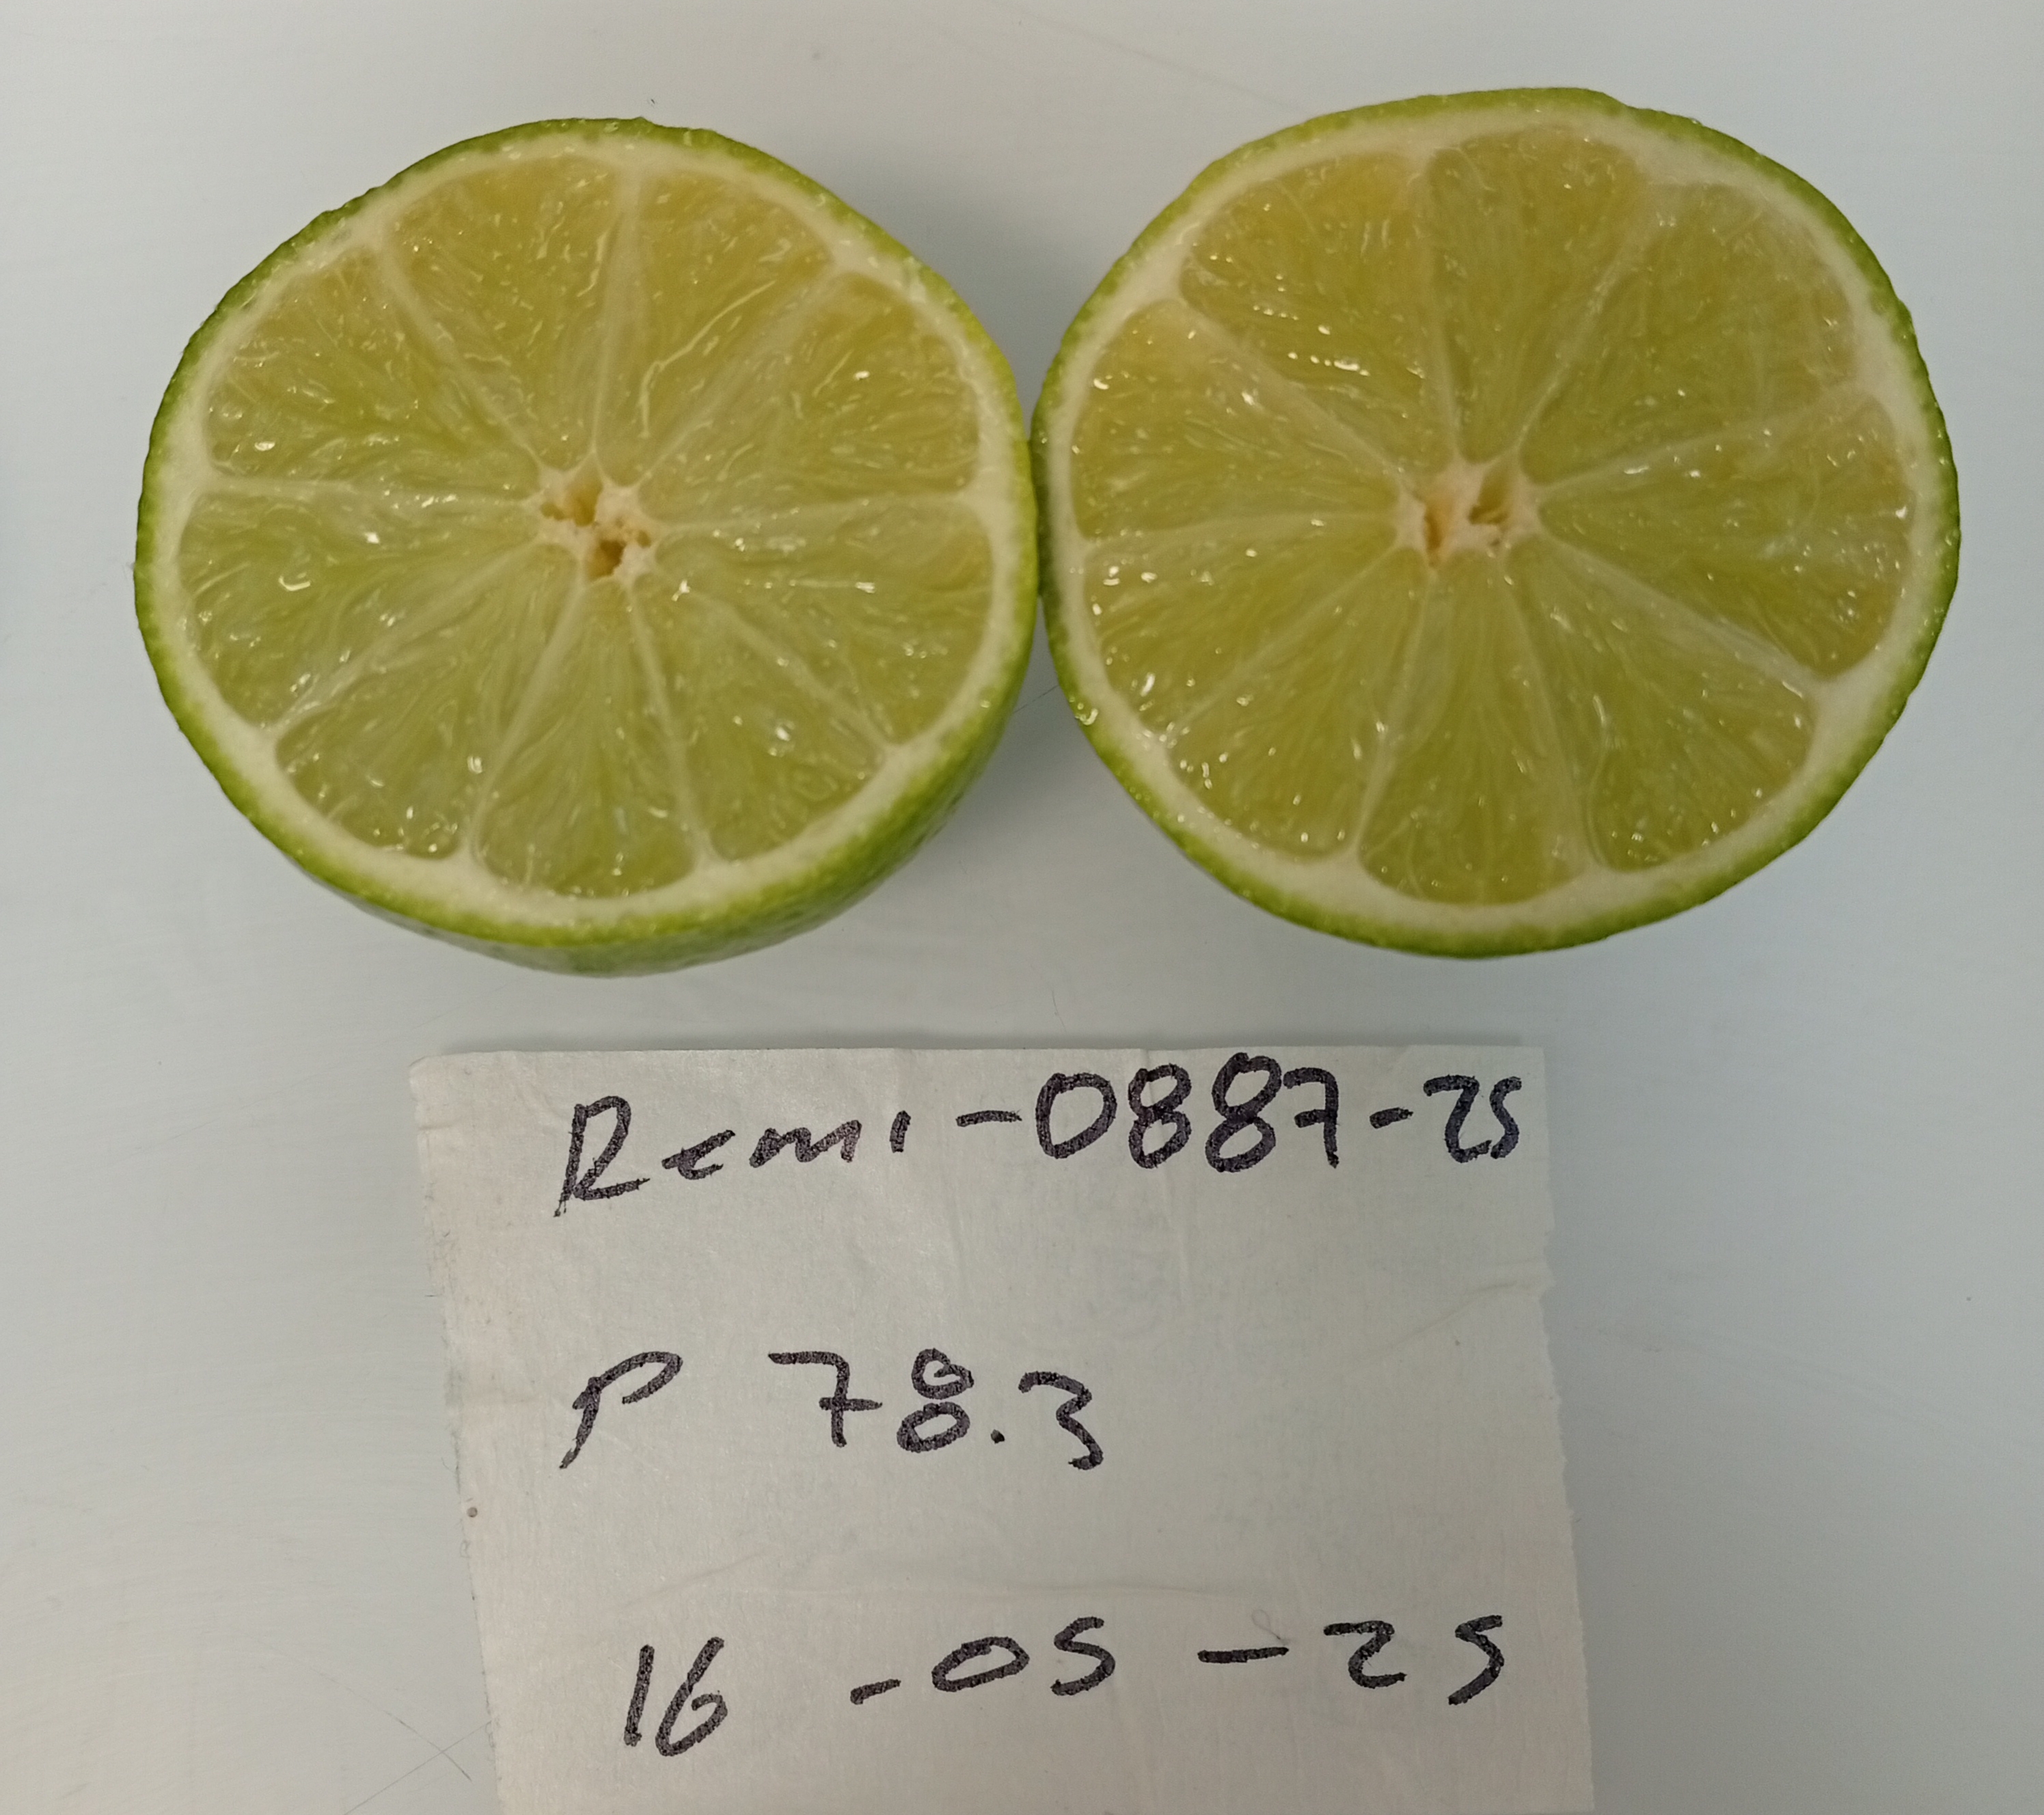 Remi-0887-25
P 78.3
16-05-25